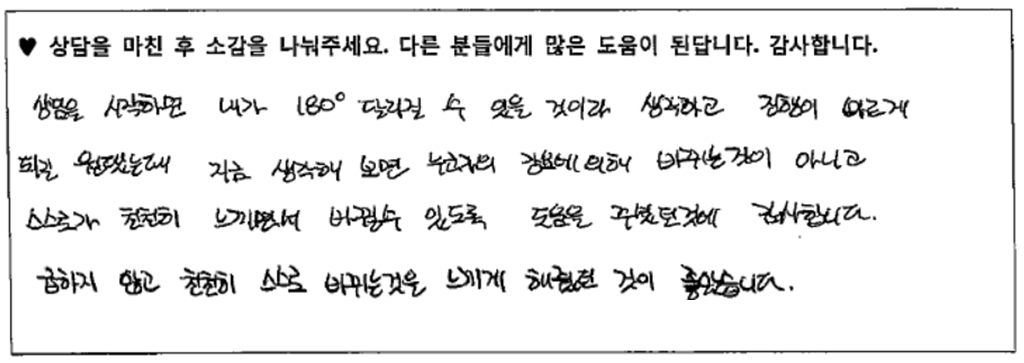 ♥ 상담을 마친 후 소감을 나눠주세요. 다른 분들에게 많은 도움이 된답니다. 감사합니다.
상담을 시작하면 내가 180° 달라질 수 있을 것이라 생각하고 진행이 빠르게
되길 원했었는데 지금 생각해 보면 누군가의 강요에 의해 바뀌는것이 아니고
스스로가 천천히 느끼면서 바뀔수 있도록 도움을 주셨던것에 감사합니다.
급하지 않고 천천히 스스로 바뀌는것을 느끼게 해줬던 것이 좋았습니다.